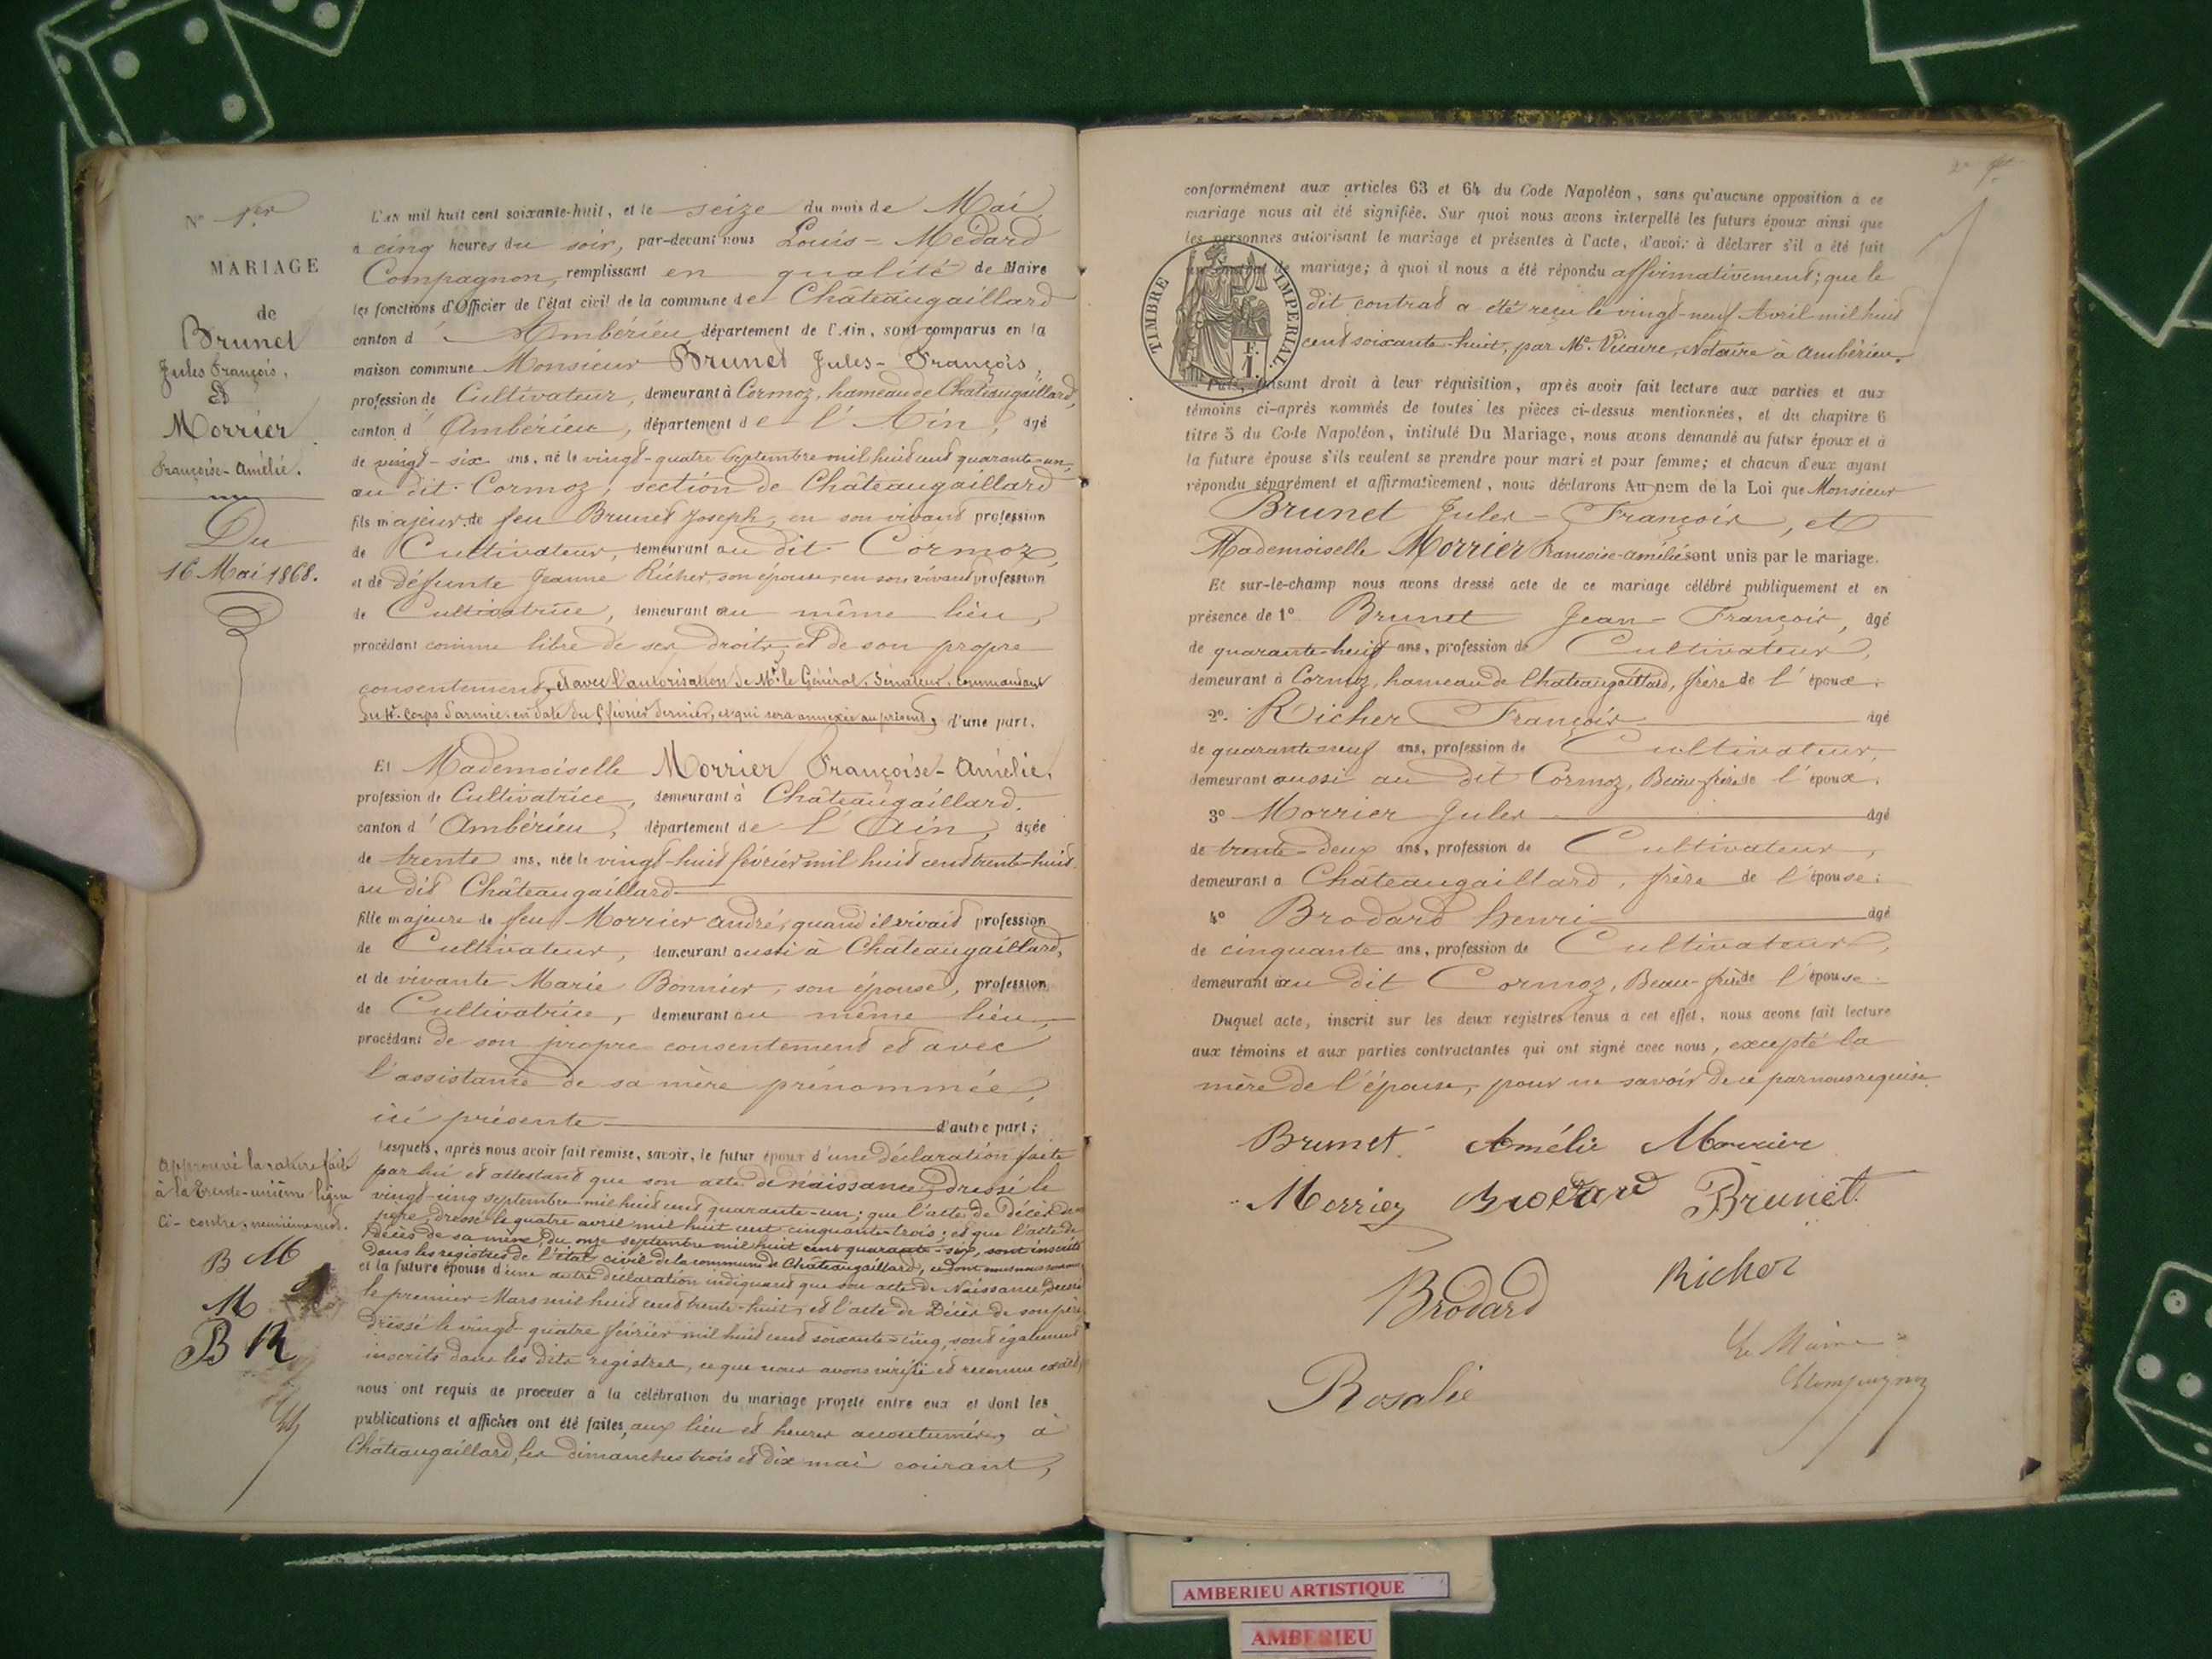 N° 1er
MARIAGE
de
Brunet
Jules François,
Et
Morrier
Françoise-Amélie.
Du
16 Mai 1868.
L'AN mil huit cent soixante-huit, et le seize du mois de Mai
à cinq heures du soir, par-devant nous Louis-Médard
Compagnon, remplissant en qualité de Maire
les fonctions d'Officier de l'état civil de la commune de Châteaugaillard
canton d'Ambérieu, département de l'Ain, sont comparus en la
maison commune Monsieur Brunet Jules-François,
profession de Cultivateur, demeurant à Cormoz, hameau de Châteaugaillard,
canton d'Ambérieu, département de l'Ain, âgé
de vingt-six ans, né le vingt-quatre Septembre mil huit cent quarante-un,
au dit Cormoz, section de Châteaugaillard
fils majeur de feu Brunet Joseph, en son vivant profession
de Cultivateur, demeurant au dit Cormoz,
et de défunte Jeanne Richer, son épouse, en son vivant profession
de Cultivatrice, demeurant au même lieu,
procédant comme libre de ses droits, et de son propre
consentement, et avec l'autorisation de Mr. le Général, Sénateur, commandant
du 4e. Corps d'armée, en date du 5 février dernier, et qui sera annexée au présent, d'une part.
Et Mademoiselle Morrier Françoise-Amélie,
profession de Cultivatrice, demeurant à Châteaugaillard.
canton d'Ambérieu, département de l'Ain, âgée
de trente ans, née le vingt-huit février mil huit cent trente-huit
au dit Châteaugaillard
fille majeure de feu Morrier André, quand il vivait profession
de Cultivateur, demeurant aussi à Châteaugaillard,
et de vivante Marie Bonnier, son épouse, profession
de Cultivatrice, demeurant au même lieu,
procédant de son propre consentement et avec
l'assistance de sa mère prénommée,
ici présente d'autre part;
Lesquels, après nous avoir fait remise, savoir, le futur époux d'une déclaration faite
par lui et attestant que son acte de naissance, dressé le
vingt-cinq septembre mil huit cent quarante-un; que l'acte de décès de son
père, dressé le quatre avril mil huit cent cinquante-trois; et que l'acte de
décès de sa mère, du onze septembre mil huit cent quarante-six, sont inscrits
dans les registres de l'état civil de la commune de Châteaugaillard, ce dont nous nous
et la future épouse d'une autre déclaration indiquant que son acte de Naissance, dressé
le premier Mars mil huit cent trente-huit, et l'acte de Décès de son père,
dressé le vingt quatre février mil huit cent soixante-cinq, sont également
inscrits dans les dits registres, ce que nous avons vérifié et reconnu exact,
nous ont requis de procéder à la célébration du mariage projeté entre eux et dont les
publications et affiches ont été faites, aux lieu et heures accoutumés, à
Châteaugaillard, les dimanches trois et dix mai courant,
Approuvé la rature faite
à la trente-unième ligne
ci-contre, neuvième mot.
B M
M
B R
conformément aux articles 63 et 64 du Code Napoléon, sans qu'aucune opposition à ce
mariage nous ait été signifiée. Sur quoi nous avons interpellé les futurs époux ainsi que
les personnes autorisant le mariage et présentes à l'acte, d'avoir à déclarer s'il a été fait
un contrat de mariage; à quoi il nous a été répondu affirmativement; que le
dit contrat a été reçu le vingt-neuf Avril mil huit
cent soixante-huit, par Me. Vicaire, Notaire à Ambérieu.
TIMBRE IMPERIAL
F.
1.
Puis, faisant droit à leur réquisition, après avoir fait lecture aux parties et aux
témoins ci-après nommés de toutes les pièces ci-dessus mentionnées, et du chapitre 6
titre 5 du Code Napoléon, intitulé Du Mariage, nous avons demandé au futur époux et à
la future épouse s'ils veulent se prendre pour mari et pour femme; et chacun d'eux ayant
répondu séparément et affirmativement, nous déclarons Au nom de la Loi que Monsieur
Brunet Jules-François, et
Mademoiselle Morrier Françoise-Amélie sont unis par le mariage.
Et sur-le-champ nous avons dressé acte de ce mariage célébré publiquement et en
présence de 1° Brunet Jean-François, âgé
de quarante-huit ans, profession de Cultivateur,
demeurant à Cormoz, hameau de Châteaugaillard, frère de l'époux.
2° Richer François âgé
de quarante neuf ans, profession de Cultivateur,
demeurant aussi au dit Cormoz, Beau-frère de l'époux.
3° Morrier Jules âgé
de trente-deux ans, profession de Cultivateur,
demeurant à Châteaugaillard, frère de l'épouse;
4° Brodard henri âgé
de cinquante ans, profession de Cultivateur,
demeurant au dit Cormoz, Beau-frère de l'épouse.
Duquel acte, inscrit sur les deux registres tenus à cet effet, nous avons fait lecture
aux témoins et aux parties contractantes qui ont signé avec nous, excepté la
mère de l'épouse, pour ne savoir de ce par nous requise.
Brunet Amélie Morrier
Morrier Brodard Brunet
Brodard Richer
Rosalie
Le Maire
Compagnon
AMBERIEU ARTISTIQUE
AMBERIEU